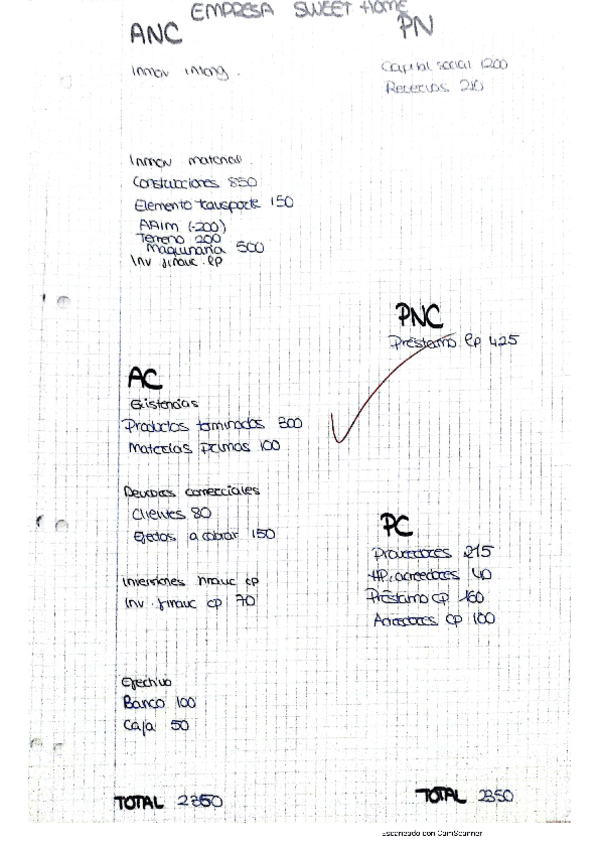 EMPRESA SWEET HOME
ANC
Inmov intang.
Inmov material.
Construcciones 850
Elemento transporte 150
AAIM (-200)
Terreno 200
Maquinaria 500
Inv financ. lp
AC
Existencias
Productos terminados 300
Materias primas 100
Deudores comerciales
Clientes 80
Efectos a cobrar 150
Inversiones financ cp
Inv. financ cp 70
Efectivo
Banco 100
Caja 50
TOTAL 2350
PN
Capital social 1200
Reservas 210
PNC
Préstamo lp 425
PC
Proveedores 215
HP. acreedores 40
Préstamo cp 160
Acreedores cp 100
TOTAL 2350
Escaneado con CamScanner